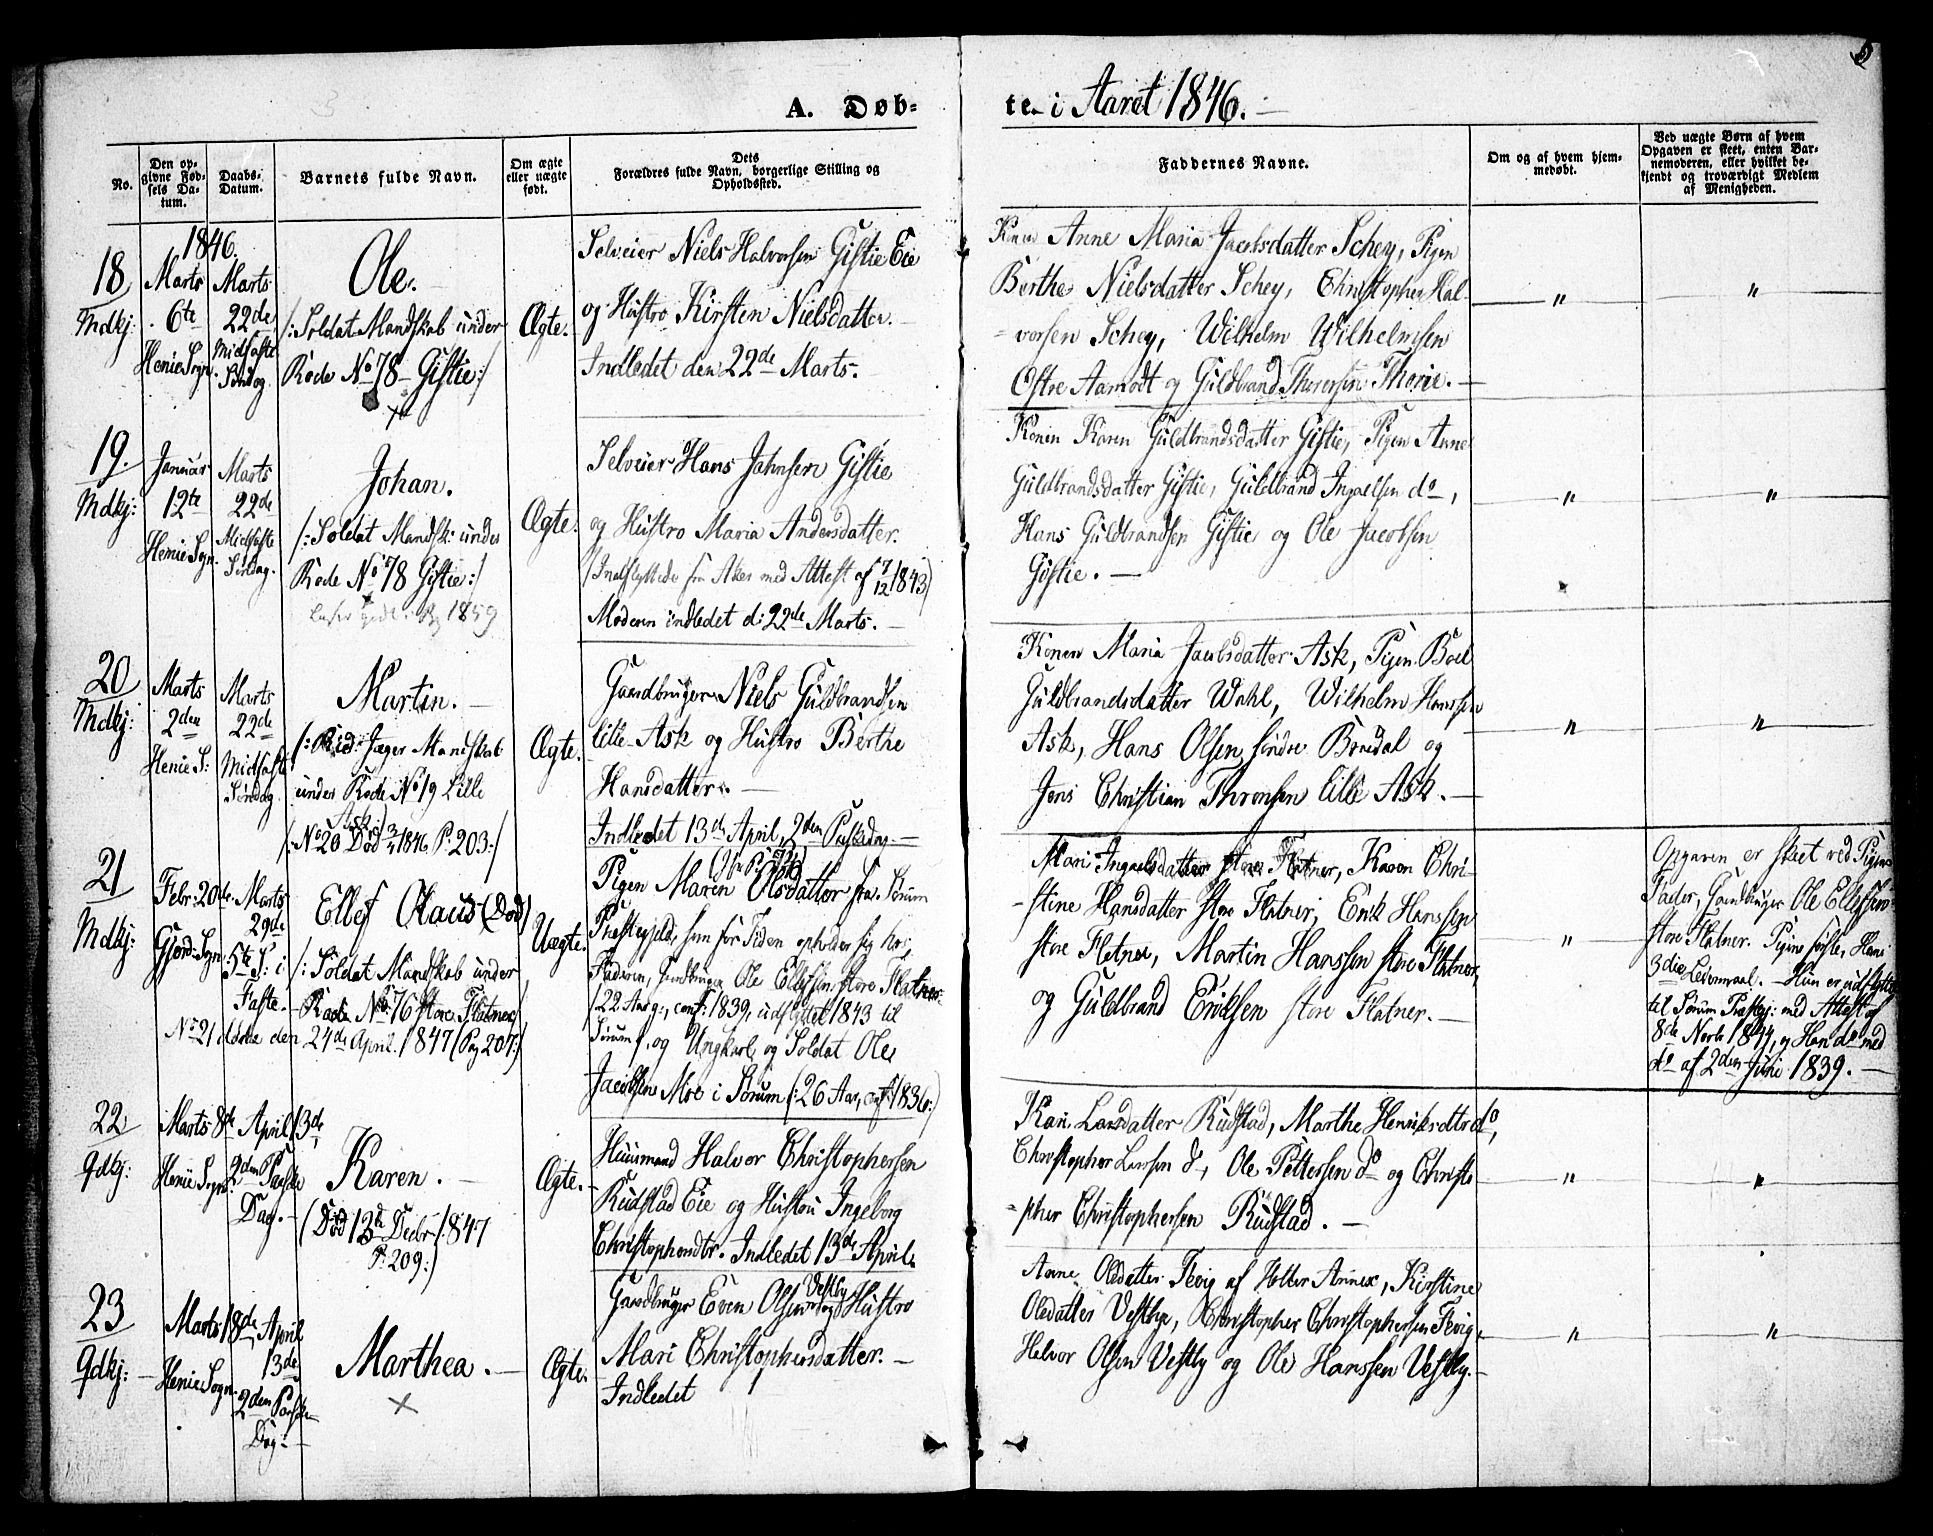 A. Døb-
te i Aaret 1846.
No.
Den op-
givne Fød-
sels Da-
tum.
Daabs-
Datum.
Barnets fulde Navn.
Om ægte
eller uægte
født.
Dets
Forældres fulde Navn, borgerlige Stilling og
Opholdssted.
Faddernes Navne.
Om og af hvem hjem-
medøbt.
Ved uægte Børn af hvem
Opgaven er skeet, enten Bar-
nemoderen, eller hvilket be-
kjendt og troværdigt Medlem
af Menigheden.
1846.
18
Mdkj:
Marts
6te
Henie Sogn
Marts
22de
Midfaste
Søndag.
Ole.
/:Soldat Mandskab under
Rode No 78 Gistie:/
Ægte.
Selveier Niels Halvorsen Gistie Eie
og Hustro Kirsten Nielsdatter.
Indledet den 22de Marts.
Konen Anne Maria Jacobsdatter Schey, Pigen
Berthe Nielsdatter Schey, Christopher Hal-
vorsen Schey, Wilhelm Wilhelmsen
Østre Aamodt og Guldbrand Thoresen Thorie.
"
"
19.
Mdkj:
Januar
12te
Henie Sogn.
Marts
22de
Midfaste
Søndag.
Johan.
/:Soldat Mandsk: under
Rode No 78 Gistie:/
1859
Ægte.
Selveier Hans Johnsen Gistie
og Hustro Maria Andersdatter.
(Indflyttede fra Aker med Attest af 7/12 1843)
Moderen indledet d: 22de Marts.
Konen Karen Guldbrandsdatter Gistie, Pigen Anne
Guldbrandsdatter Gistie, Guldbrand Ingaelsen do,
Hans Guldbrandsen Gistie og Ole Jacobsen
Gistie.
"
"
20
Mdkj:
Marts
2den
Henie S:
Marts
22de
Midfaste
Søndag.
Martin.
/:Rid: Jæger Mandskab
under Rode No 19 Lille
Ask:/
/:No 20 Død 3/4 1846 P: 203:/
Ægte.
Gaardbruger Niels Guldbrandsen
lille Ask og Hustro Berthe
Hansdatter.
Indledet 13de April, 2den Paaskedag.
Konen Maria Jacobsdatter Ask, Pigen Boel
Guldbrandsdatter Wahl, Wilhelm Hanssen
Ask, Hans Olsen søndre Bredal og
Jens Christian Thronsen lille Ask.
"
"
21
Mdkj:
Febr: 20de
Gjerd: Sogn
Marts
29de
5te S: i
Faste.
Ellef Olaus (Død)
/:Soldat Mandskab under
Rode No 76 Store Flatner/
No 21 døde den 24de April 1847 (Pag 207:)
Uægte.
Pigen Maren Olsdatter fra Sørum
Præstegjeld, som for Tiden opholder sig hos
Faderen, Gaardbruger Ole Ellefsen store Flatner
/22 Aar g:, conf: 1839, udflyttet 1843 til
Sørum/, og Ungkarl og Soldat Ole
Jacobsen Moe i Sørum (:26 Aar, conf: 1836:)
Mari Ingaelsdatter store Flatner, Karen Chri-
stine Hansdatter store Flatner, Erik Hanssen
store Flatner, Martin Hanssen store Flatner,
og Guldbrand Eriksen store Flatner.
"
Opgaven er skeet ved Pigens
Fader, Gaardbruger Ole Ellefsen
store Flatner. Pigens første, Hans
3die Leiermaal. Hun er udflyttet
til Sørum Præstegj: med Attest af
8de Novbr 1844, og Han do med
do af 2den Juni 1839.
22
Gdkj:
Marts 8de
Henie Sogn.
April 13de
2den Paaske
Dag.
Karen.
(Død 13de Decbr 1847
P. 209:)
Ægte.
Huusmand Halvor Christophersen
Rudstad Eie og Hustru Ingeborg
Christophersdtr. Indledet 13de April.
Kari Larsdatter Rudstad, Marthe Henriksdtr do,
Christopher Larssen do, Ole Pettersen do og Christo
-pher Christophersen Rudstad.
"
"
23
Gdkj:
Marts 18de
Henie Sogn.
April
13de
2den Paaske
Dag.
Marthea.
Ægte.
Gaardbruger Even Olsen Vestby og Hustro
Mari Christophersdatter.
Indledet
Anne Olsdatter Tevig af Holter Annex, Kirstine
Olsdatter Vestbye, Christopher Christophersen Tevig,
Halvor Olsen Vestby og Ole Hanssen Vestby.
"
"